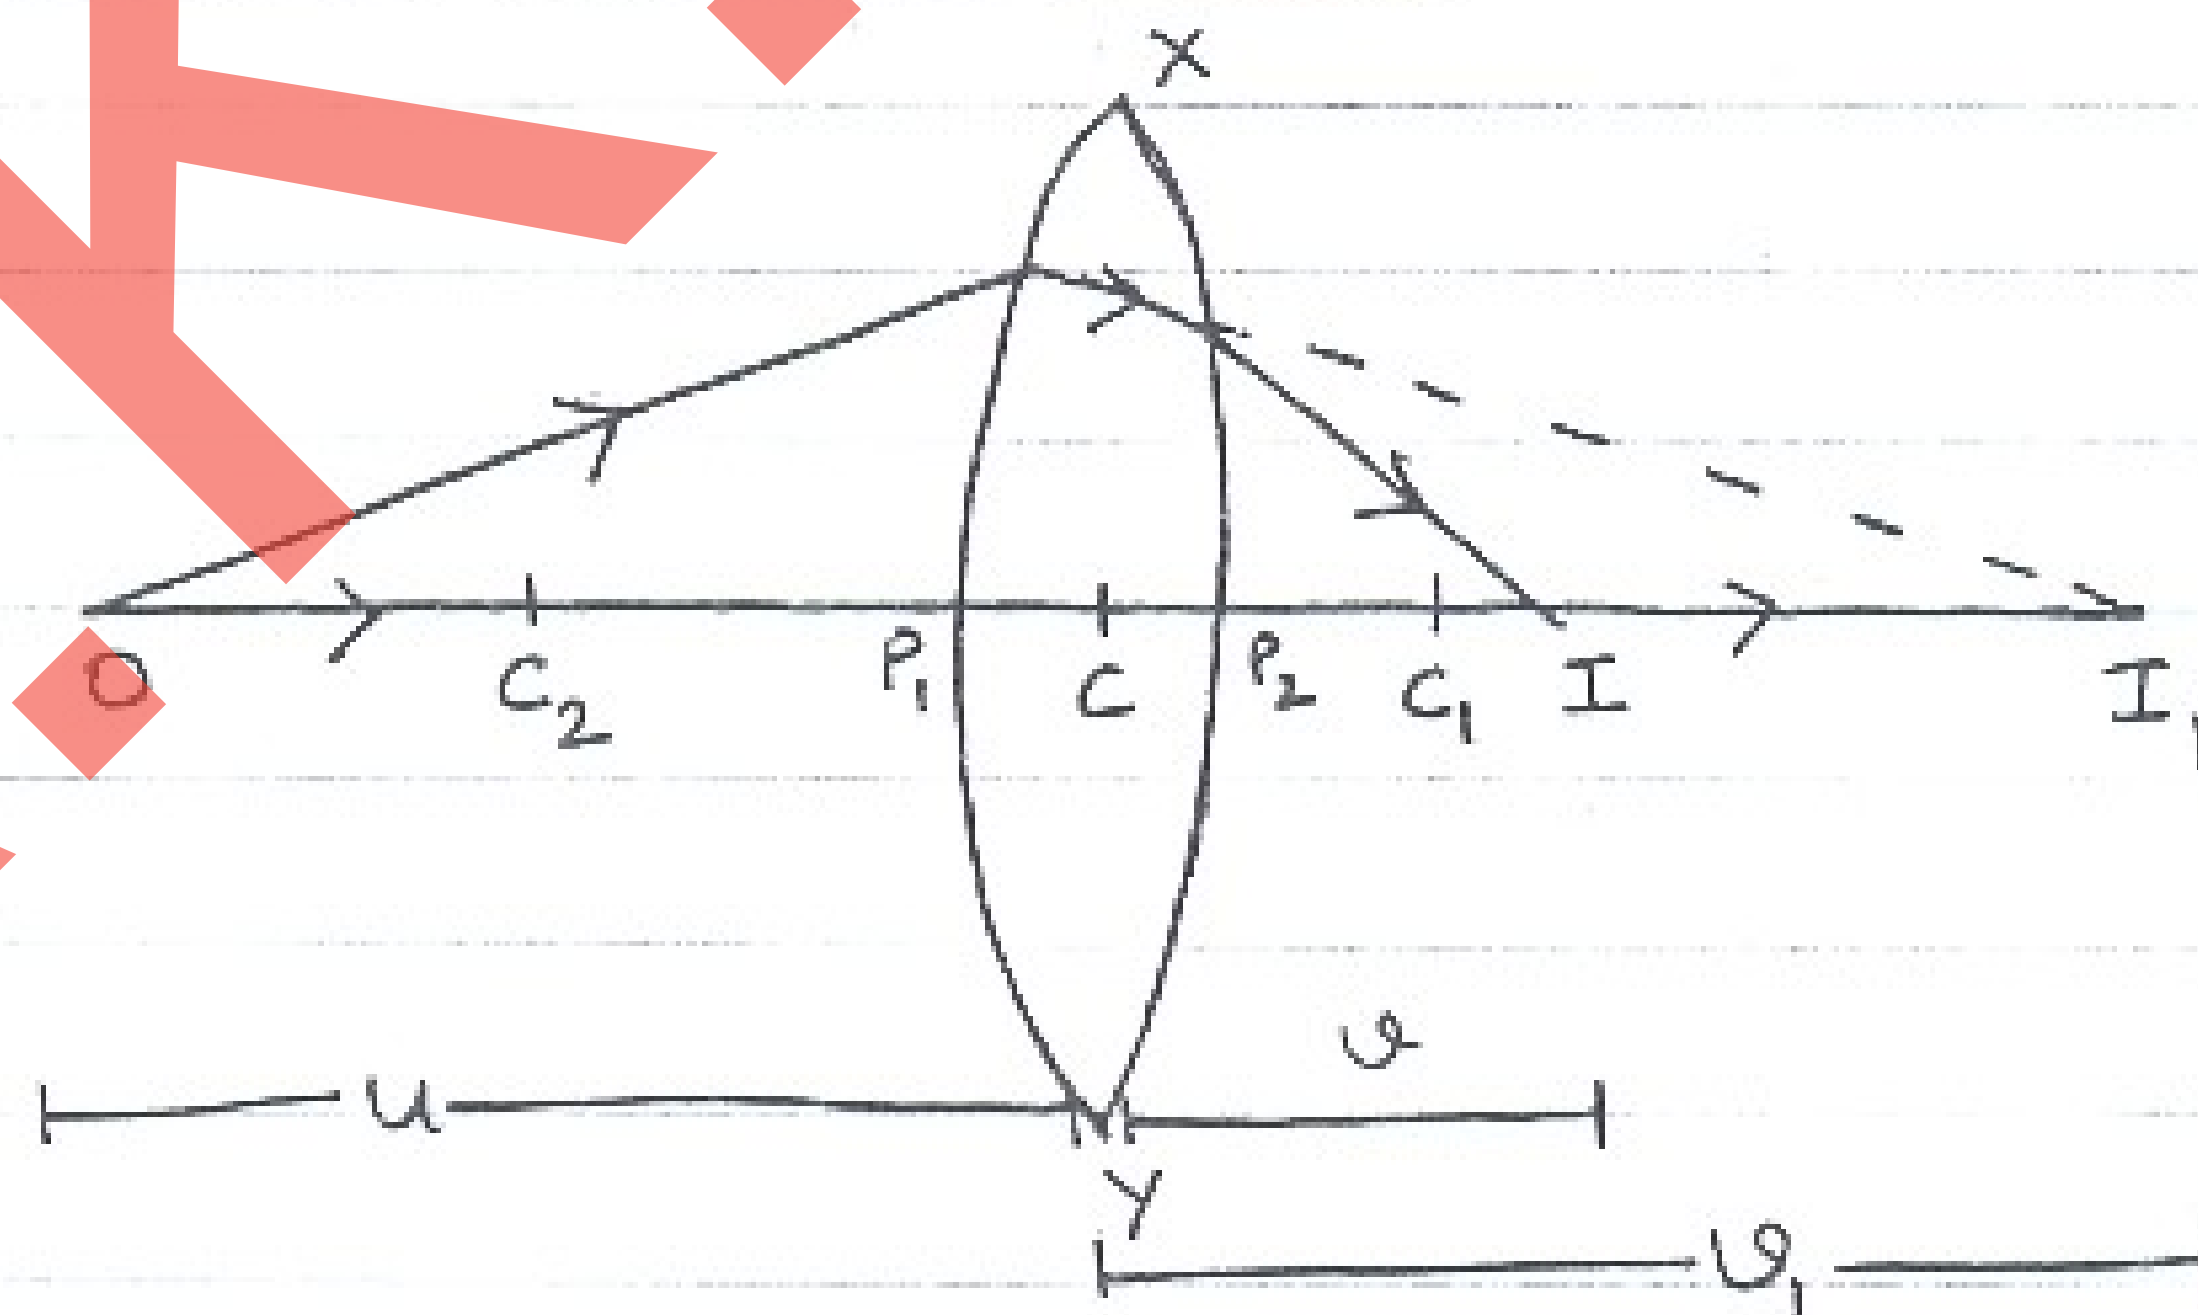 X
O C₂ P₁ C P₂ C₁ I I₁
u v
Y
v₁